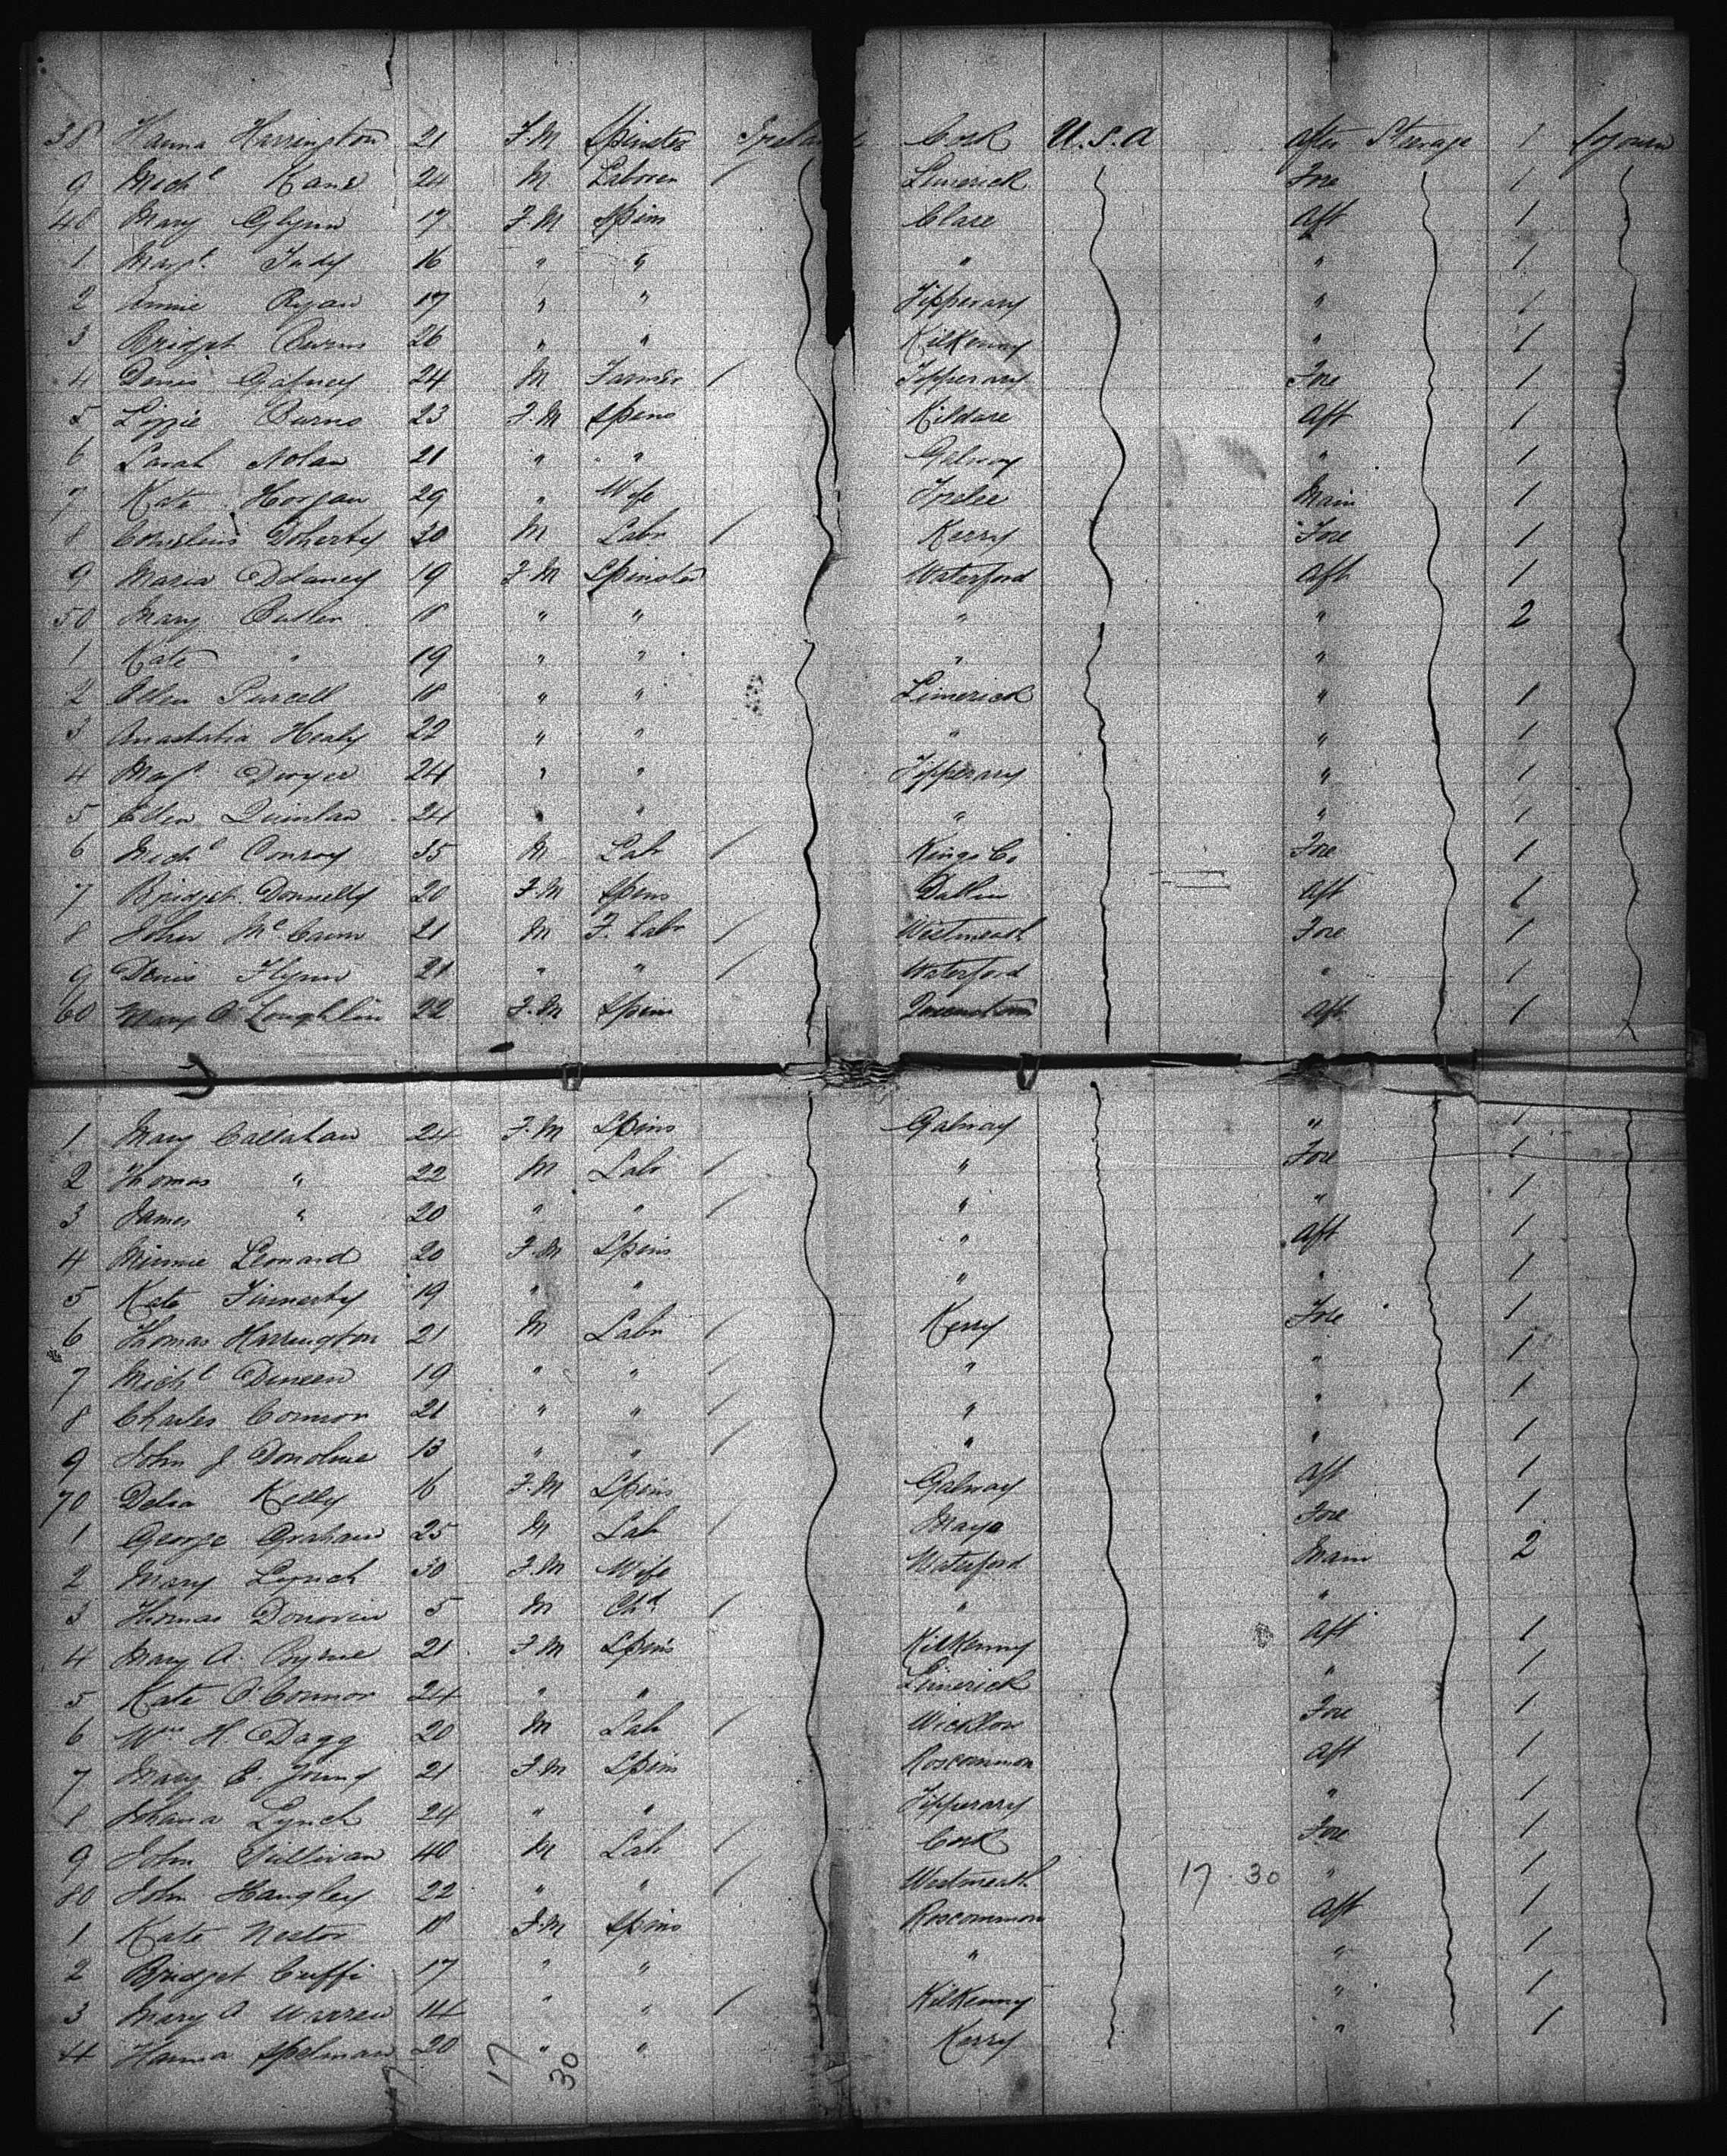 38 Hanna Harrington 21 F.M Spinster Ireland Cork U.S.A After Steerage 1 Sojourn
9 Mich^l Kane 24 M Laborer / Limerick Fore 1
40 Mary Glynn 17 F.M Spin Clare Aft 1
1 Marg^t Judy 16 " " " " 1
2 Annie Ryan 17 " " Tipperary " 1
3 Bridget Burns 26 " " Kilkenny " 1
4 Denis Gafney 24 M Farmer / Tipperary Fore 1
5 Lizzie Burns 23 F.M Spins Kildare Aft 1
6 Sarah Nolan 21 " " Galway " 1
7 Kate Horgan 29 " Wife Tralee Main 1
8 Cornelius Doherty 20 M Labr / Kerry Fore 1
9 Maria Delaney 19 F.M Spinster Waterford Aft 1
50 Mary Butler 18 " " " " 2
1 Kate " 19 " " " "
2 Ellen Purcell 18 " " Limerick " 1
3 Anastatia Healy 22 " " " " 1
4 Mag^t Dwyer 24 " " Tipperary " 1
5 Ellen Quinlan 24 " " " " 1
6 Mich^l Conroy 35 M Lab / Kings Co Fore 1
7 Bridget Donnelly 20 F.M Spins Dublin Aft 1
8 John McCann 21 M F. Labr / Westmeath Fore 1
9 Denis Flynn 21 " " / Waterford " 1
60 Mary O'Loughlin 22 F.M Spins Queenstown Aft 1
1 Mary Callahan 24 F.M Spins Galway " 1
2 Thomas " 22 M Labr / " Fore 1
3 James " 20 " " / " " 1
4 Minnie Leonard 20 F.M Spins " Aft 1
5 Kate Finnerty 19 " " " " 1
6 Thomas Harrington 21 M Labr / Kerry Fore 1
7 Mich^l Dineen 19 " " / " " 1
8 Charles Connor 21 " " / " " 1
9 John J Donohue 13 " " / " " 1
70 Delia Kelly 16 F.M Spins Galway Aft 1
1 George Graham 25 M Lab / Mayo Fore 1
2 Mary Lynch 30 F.M Wife Waterford Main 2
3 Thomas Donovin 5 M Ch^d / " "
4 Mary A. Byrne 21 F.M Spins Kilkenny Aft 1
5 Kate O'Connor 24 " " Limerick " 1
6 Wm H. Dagg 20 M Lab / Wicklow Fore 1
7 Mary E. Young 21 F.M Spins Roscommon Aft 1
8 Johana Lynch 24 " " Tipperary " 1
9 John Sullivan 40 M Lab / Cork Fore 1
80 John Hangley 22 " " / Westmeath 17.30 " 1
1 Kate Nestor 18 F.M Spins Roscommon Aft 1
2 Bridget Cuffe 17 " " " " 1
3 Mary A Warren 14 " " / Kilkenny " 1
4 Hanna Spelman 20 " " Kerry " 1
17 30